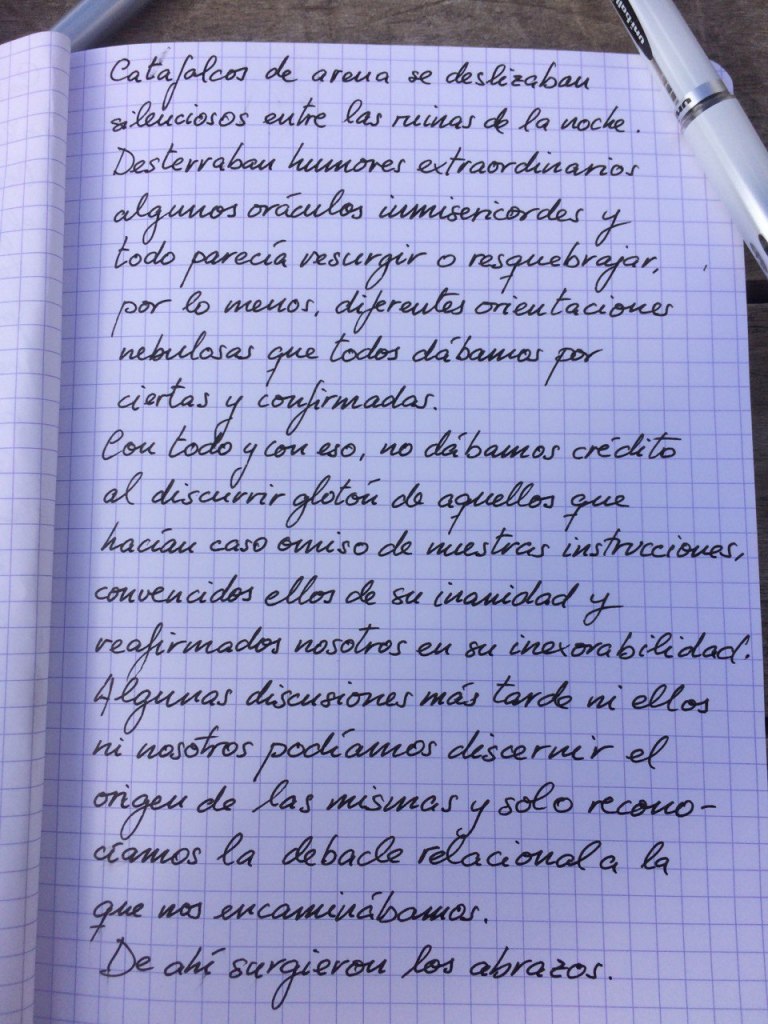 Catafalcos de arena se deslizaban
silenciosos entre las ruinas de la noche.
Desterraban humores extraordinarios
algunos oráculos inmisericordes y
todo parecía resurgir o resquebrajar,
por lo menos, diferentes orientaciones
nebulosas que todos dábamos por
ciertas y confirmadas.
Con todo y con eso, no dábamos crédito
al discurrir glotón de aquellos que
hacían caso omiso de nuestras instrucciones,
convencidos ellos de su inanidad y
reafirmados nosotros en su inexorabilidad.
Algunas discusiones más tarde ni ellos
ni nosotros podíamos discernir el
origen de las mismas y solo recono-
cíamos la debacle relacional a la
que nos encaminábamos.
De ahí surgieron los abrazos.
uni-ball